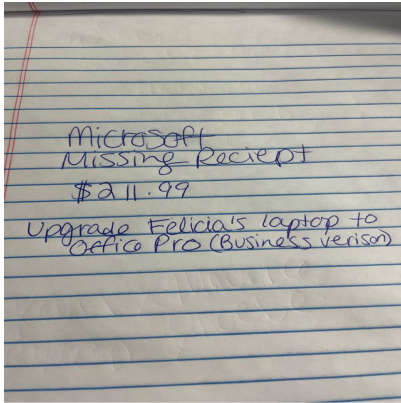 Microsoft
Missing Reciept
$211.99
Upgrade Felicia's laptop to
Office Pro (Business verison)